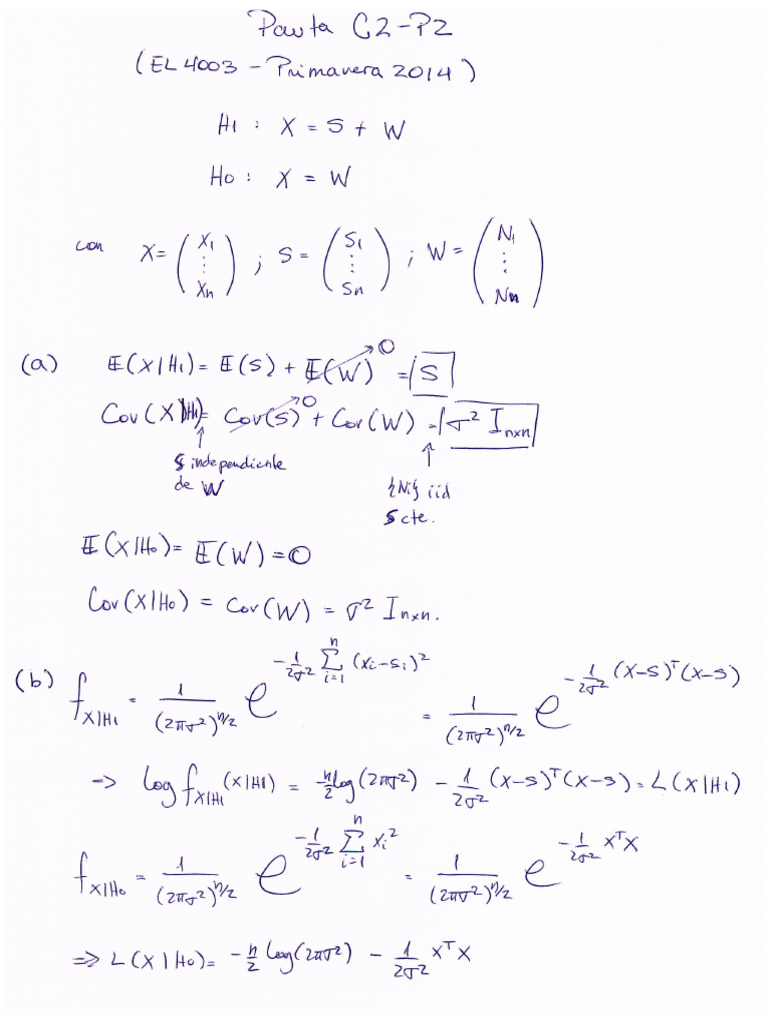 Pauta C2-P2
(EL4003 - Primavera 2014)
H1 : X = S + W
H0 : X = W
con X = (X1 ⋮ Xn) ; S = (S1 ⋮ Sn) ; W = (N1 ⋮ Nn)
(a) 𝔼(X|H1) = 𝔼(S) + 𝔼(W)→0 = S
Cov(X|H1) = Cov(S)→0 + Cov(W) = σ² I_{n×n}
↑ ↑
S independiente {Ni} iid
de W S cte.
𝔼(X|H0) = 𝔼(W) = 0
Cov(X|H0) = Cov(W) = σ² I_{n×n}.
(b) f_{X|H1} = 1/(2πσ²)^{n/2} e^{-1/(2σ²) Σ_{i=1}^{n} (xi-si)²} = 1/(2πσ²)^{n/2} e^{-1/(2σ²) (X-S)^T(X-S)}
-> log f_{X|H1}(X|H1) = -n/2 log(2πσ²) - 1/(2σ²) (X-S)^T(X-S) = L(X|H1)
f_{X|H0} = 1/(2πσ²)^{n/2} e^{-1/(2σ²) Σ_{i=1}^{n} xi²} = 1/(2πσ²)^{n/2} e^{-1/(2σ²) X^T X}
=> L(X|H0) = -n/2 log(2πσ²) - 1/(2σ²) X^T X